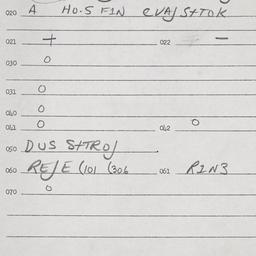 020 A HO.S FIN EVAJ S+TOK
021 + 022 -
030 O
031 O
040 O
041 O 042 O
050 DUS S+TROJ
060 REJE (101 (306 061 RIN3
070 O